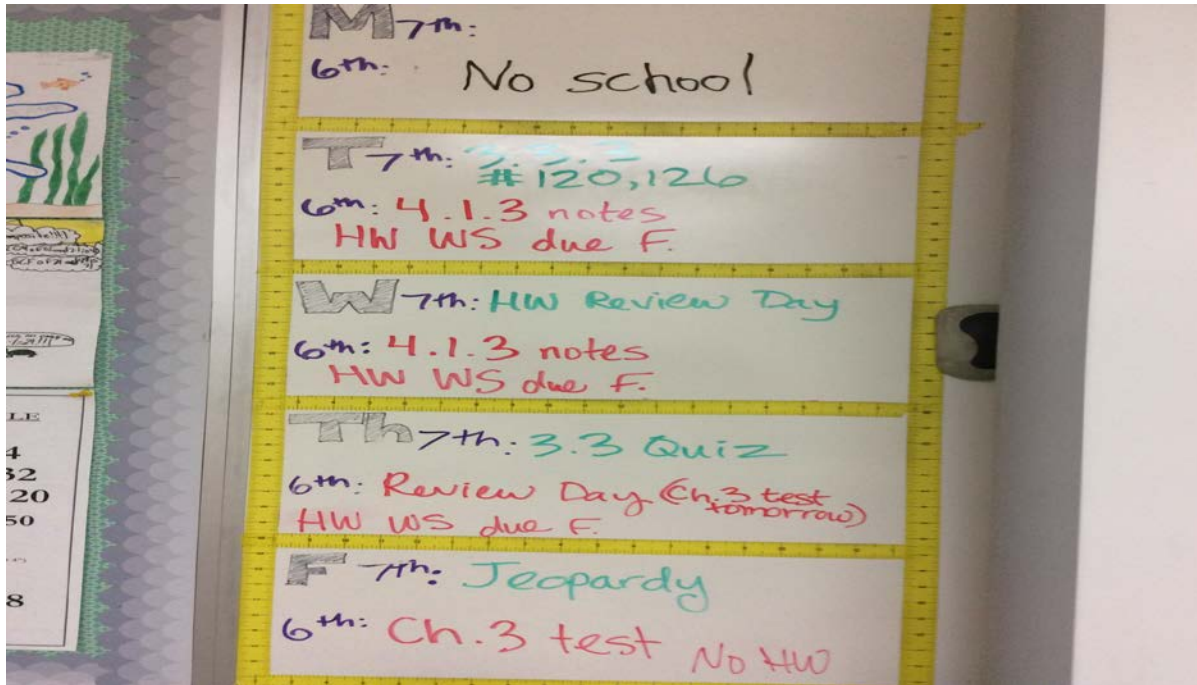 M 7th:
6th: No school
T 7th: 3.3.3
#120,126
6th: 4.1.3 notes
HW WS due F.
W 7th: HW Review Day
6th: 4.1.3 notes
HW WS due F.
Th 7th: 3.3 Quiz
6th: Review Day (Ch.3 test
tomorrow)
HW WS due F.
F 7th: Jeopardy
6th: Ch.3 test No HW
LE
4
32
20
50
8